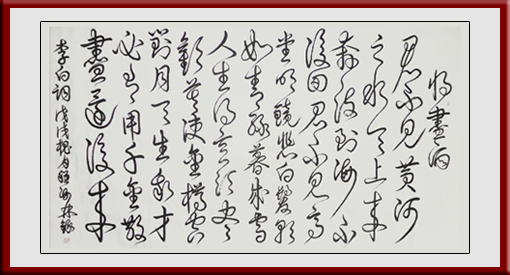 将進酒
君不見黄河
之水天上来
奔流到海不
復回君不見高
堂明鏡悲白髮朝
如青絲暮成雪
人生得意須尽
歡莫使金樽空
對月天生我才
必有用千金散
盡還復来
李白詞